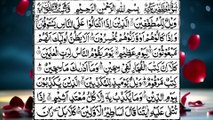 بِسْمِ اللهِ الرَّحْمٰنِ الرَّحِيْمِ
وَيْلٌ لِّلْمُطَفِّفِيْنَ الَّذِيْنَ اِذَا اكْتَالُوْا عَلَى النَّاسِ يَسْتَوْفُوْنَ
وَاِذَا كَالُوْهُمْ اَوْ وَّزَنُوْهُمْ يُخْسِرُوْنَ اَلَا يَظُنُّ اُولٰٓئِكَ اَنَّهُمْ
مَّبْعُوْثُوْنَ لِيَوْمٍ عَظِيْمٍ يَّوْمَ يَقُوْمُ النَّاسُ لِرَبِّ الْعٰلَمِيْنَ
كَلَّآ اِنَّ كِتٰبَ الْفُجَّارِ لَفِيْ سِجِّيْنٍ وَمَآ اَدْرٰىكَ مَا سِجِّيْنٌ
كِتٰبٌ مَّرْقُوْمٌ وَيْلٌ يَّوْمَئِذٍ لِّلْمُكَذِّبِيْنَ الَّذِيْنَ يُكَذِّبُوْنَ
بِيَوْمِ الدِّيْنِ وَمَا يُكَذِّبُ بِهٖٓ اِلَّا كُلُّ مُعْتَدٍ اَثِيْمٍ اِذَا
تُتْلٰى عَلَيْهِ اٰيٰتُنَا قَالَ اَسَاطِيْرُ الْاَوَّلِيْنَ